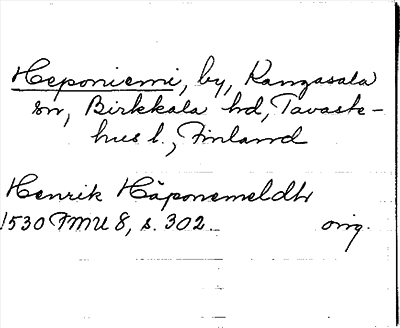 Heponiemi, by, Kangasala
sn, Birkkala hd, Tavaste-
hus l., Finland
Henrik Häponemeldh
1530 FMU 8, s. 302 orig.